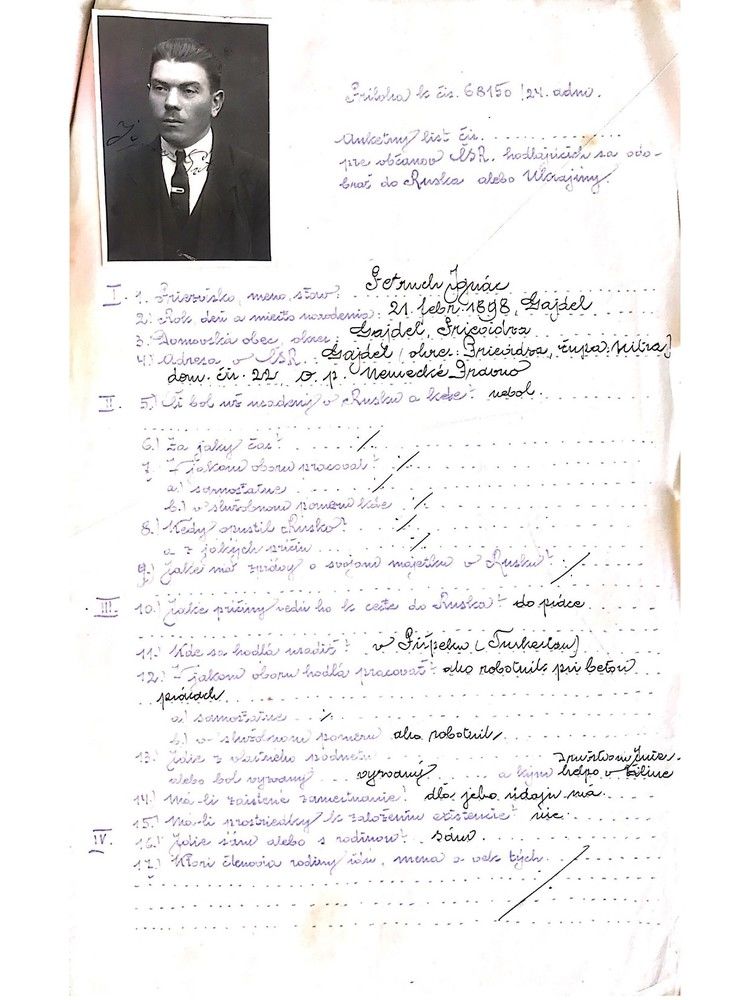 Príloha k čís. 68150/24. adm.
Anketný list čís. . . . . . . . . . .
pre občanov ČSR. hodlajúcich sa odo-
brať do Ruska alebo Ukrajiny.
I. 1. Priezvisko, meno, stav: Petruch Ignác
2. Rok deň a miesto narodenia: 21. febr. 1898, Gajdel
3. Domovská obec, okres: Gajdel, Prievidza
4.) Adresa v ČSR. Gajdel (okres: Prievidza, župa Nitra)
dom. čís. 22, p. Nemecké Pravno
II. 5.) Či bol už usadený v Rusku a kde? nebol.
6.) Za jaký čas?
7. V jakom oboru pracoval?
a.) samostatne
b.) v služobnom pomeru kde
8.) Kedy opustil Rusko?
a z jakých príčin
9.) Jaké má zprávy o svojom majetku v Rusku?
III. 10.) Jaké príčiny vedú ho k ceste do Ruska? do práce
11.) Kde sa hodlá usadiť? v Pišpeku (Turkestan)
12.) V jakom oboru hodlá pracovať? ako robotník pri beton
prácach
a.) samostatne
b.) v služobnom pomeru ako robotník
13.) Jdie z vlastného podnetu
alebo bol vyzvaný vyzvaný a kým Inter-
helpo v Žiline
14.) Má-li zaistené zamestnanie? dľa jeho údaju má.
15.) Má-li prostriedky k založeniu existencie? nie.
IV. 16.) Jdie sám alebo s rodinou? sám
17.) Ktorí členovia rodiny s ním, mena a vek tých